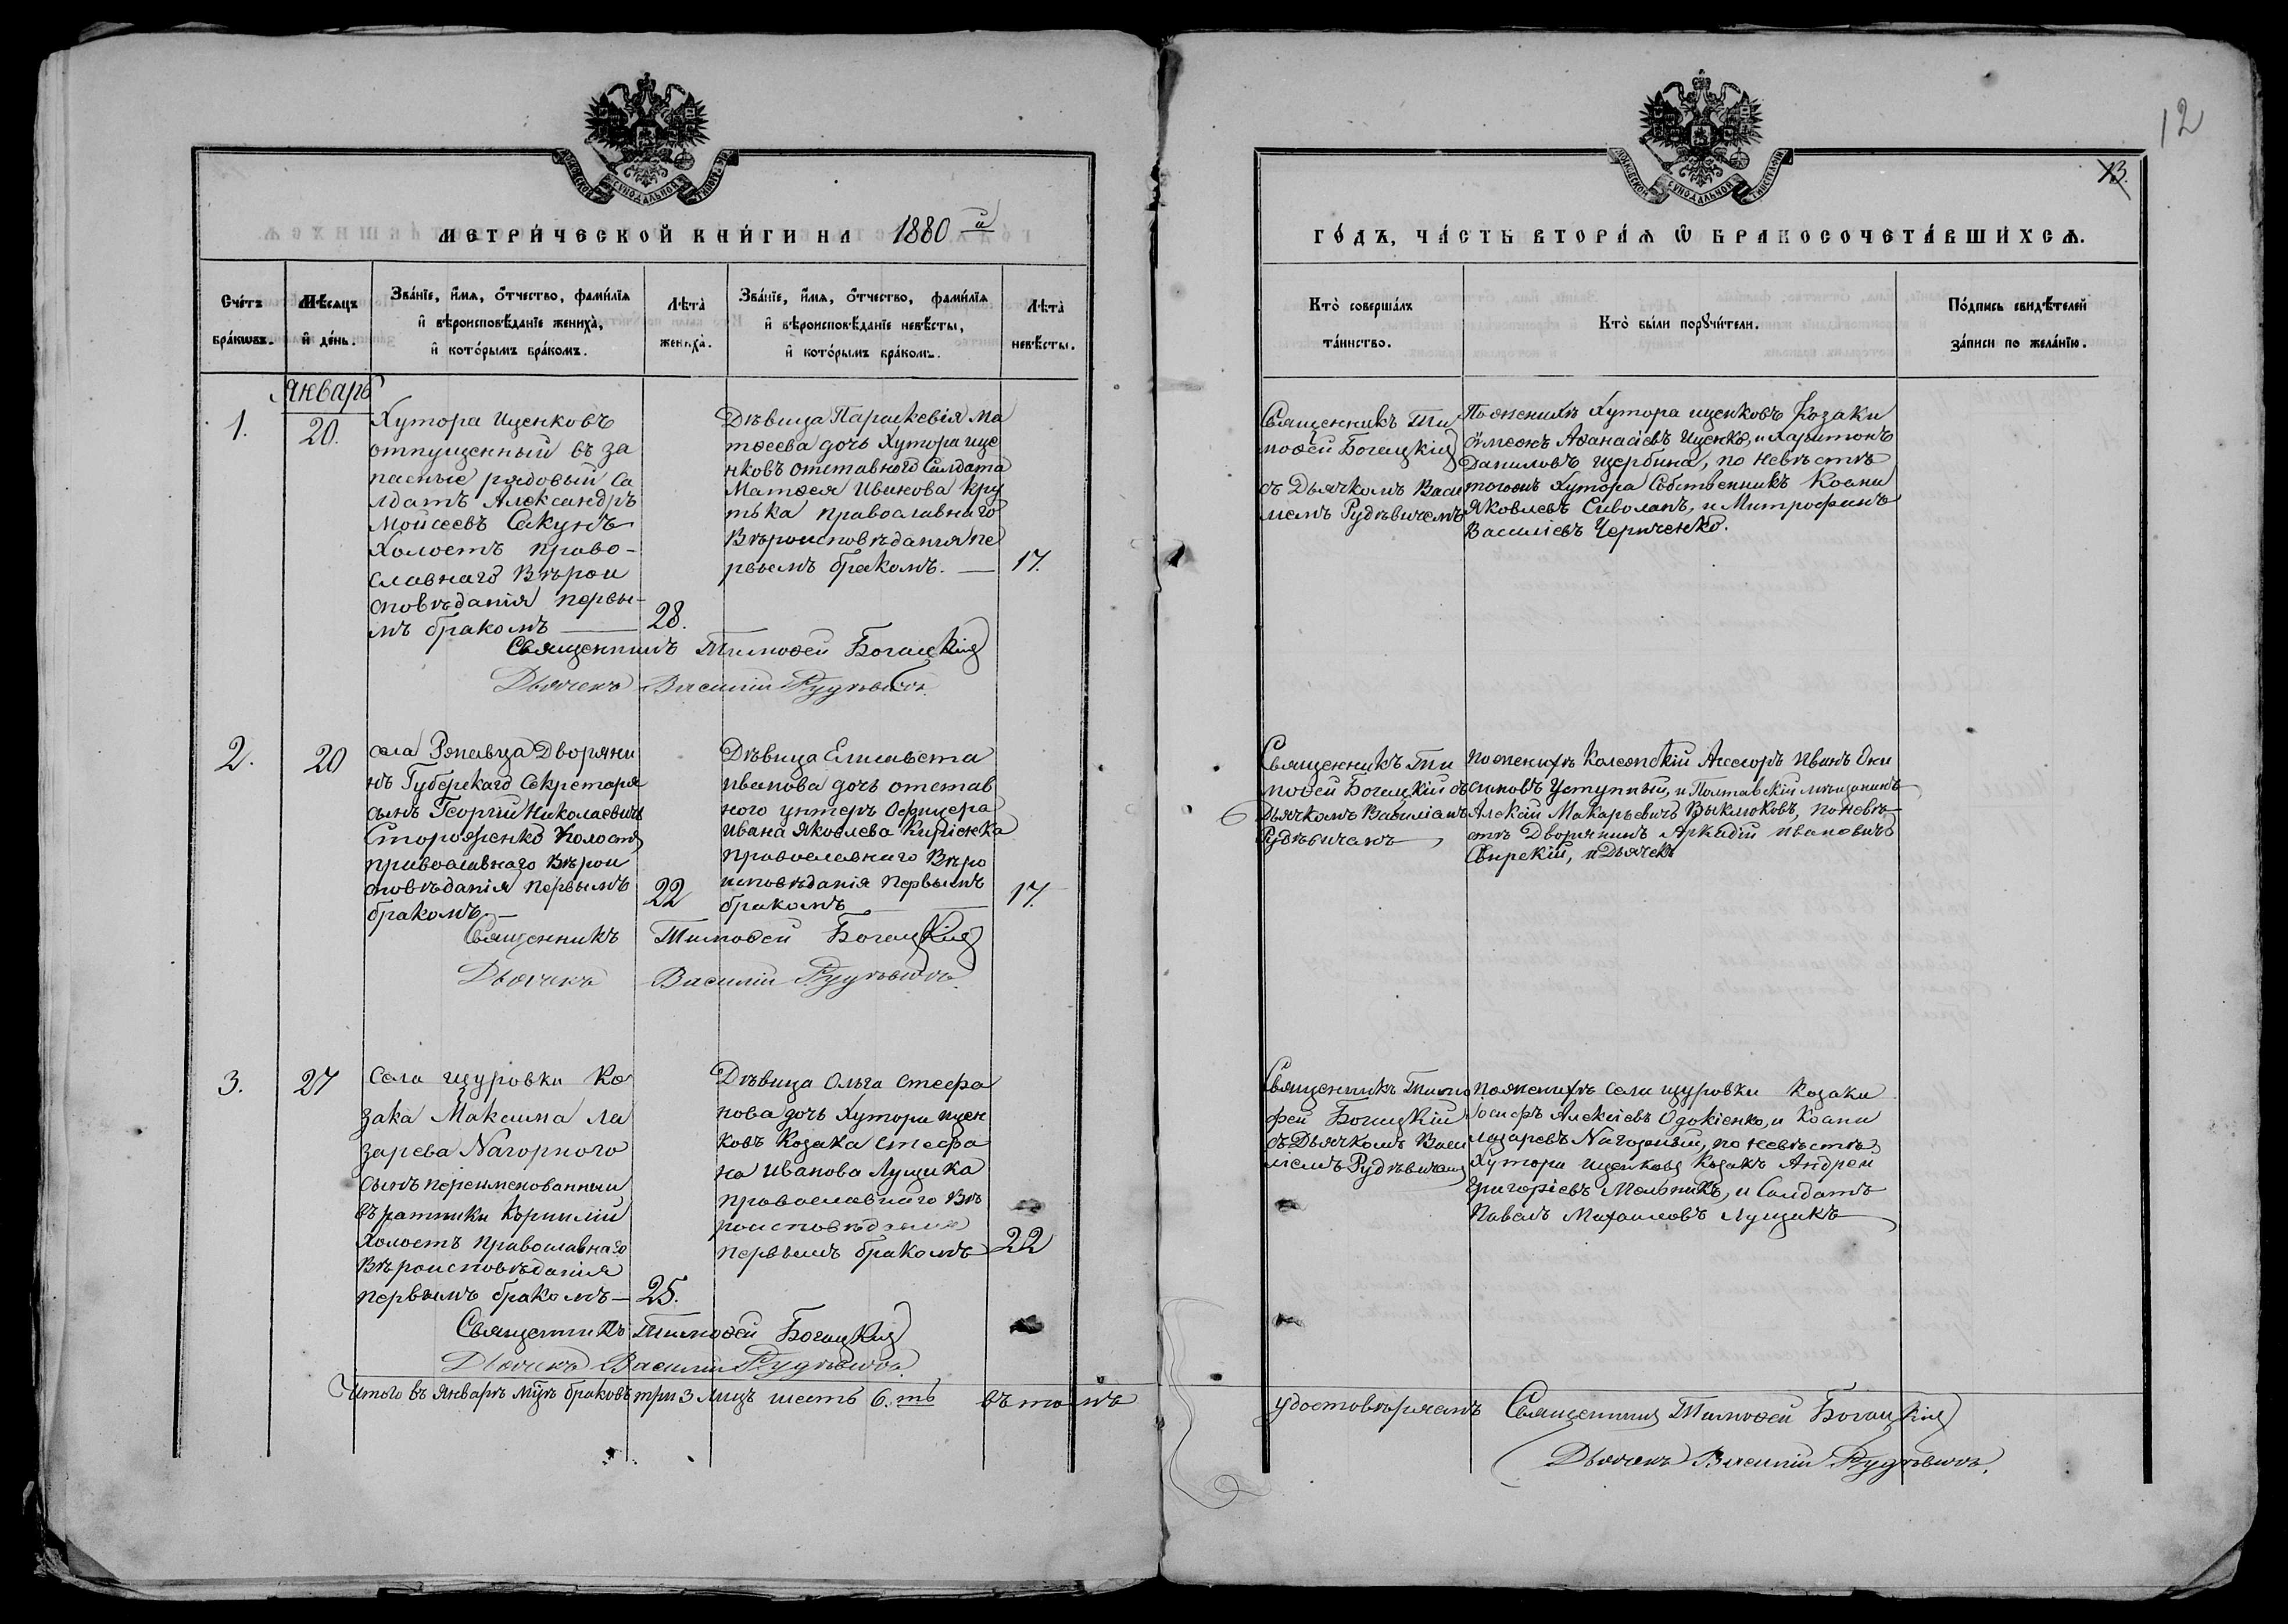 12
13.
МЕТРИ́ЧЕСКОЙ КНИ́ГИ НА 1880й
ГО́ДЪ, ЧА́СТЬ ВТОРА́Я Ѿ БРАКОСОЧЕТА́ВШИХСЯ.
Сче́тъ бра́кѡвъ.
Мѣ́сяцъ и҆ де́нь.
Зва́нїе, и҆́мя, ѻ҆́тчество, фами́лїя
и҆ вѣроисповѣ́данїе жениха̀,
и҆ кото́рымъ бра́комъ.
Лѣта̀ жениха̀.
Зва́нїе, и҆́мя, ѻ҆́тчество, фами́лїя
и҆ вѣроисповѣ́данїе невѣ́сты,
и҆ кото́рымъ бра́комъ.
Лѣта̀ невѣ́сты.
Кто̀ соверша́лъ та́инство.
Кто̀ бы́ли порꙋчи́тели.
По́дпись свидѣ́телей за́писи по жела́нїю.
Январь
1.
20.
Хутора Иценковъ
отпущенный въ за
пасные рядовый Са
лдатъ Александръ
Мойсеевъ Сакунъ
Холостъ право-
славнаго Вѣрои
сповѣданія первы-
мъ бракомъ
28.
Дѣвица Параскевія Ма
тѳеева дочь Хутора ице
нковъ отставного Салдата
Матѳея Иванова Кру
тька православнаго
Вѣроисповѣданія пе
рвымъ бракомъ.
17.
Священникъ Тимоѳей Богацкій
Дьячекъ Василій Рудѣвичъ.
Священникъ Ти
моѳей Богацкій
съ Дьячкомъ Васи
лемъ Рудѣвичемъ
По женихѣ Хутора иценковъ Козаки
Симеонъ Аѳанасіевъ Иценко, и Харитонъ
Даниловъ Щербина, по невѣстѣ
тогожъ Хутора Собственникъ Іоанъ
Яковлевъ Сиволапъ, и Митрофанъ
Василіевъ Черненко.
2.
20
села Рѣпавца Дворяни
нъ Губерскаго Секретаря
сынъ Георгій Николаевичъ
Стороженко Холостъ
православнаго Вѣрои
сповѣданія первымъ
бракомъ.
22
Дѣвица Елисавета
иванова дочь отстав
ного унтеръ Офицера
Ивана Яковлева Киріенка
православнаго Вѣро
исповѣданія первымъ
бракомъ
17.
Священникъ Тимоѳей Богацкій
Дьячекъ Василій Рудѣвичъ.
Священникъ Ти
моѳей Богацкій съ
Дьячкомъ Василіемъ
Рудѣвичемъ
по женихѣ Колежскій Ассесоръ Иванъ Они
симовъ Уступный, и Полтавскій мѣщанинъ
Алексій Макарьевичъ Выклюковъ, по невѣ
стѣ Дворянинъ Аркадій Ивановичъ
Свирскій, и Дьячекъ
3.
27
Села щуровки Ко
зака Максима ла
зарева Нагорного
сынъ переименованный
въ ратники Корнилій
Холостъ Православнаго
Вѣроисповѣданія
первымъ бракомъ
25.
Дѣвица Ольга Стефа
нова дочь Хутора ицен
ковъ Козака Стефа
на Иванова Лущика
православнаго Вѣ
роисповѣданія
первымъ бракомъ
22
Священникъ Тимоѳей Богацкій
Дьячекъ Василій Рудѣвичъ.
Священникъ Тимо
фей Богацкій
съ Дьячкомъ Васи
ліемъ Рудѣвичемъ
по женихѣ села щуровки Козаки
Іосифъ Алексіевъ Одокіенко, и Іоанъ
лазаревъ Нагорный, по невѣстѣ
Хутора иценковъ Козакъ Андрей
Григоріевъ Мельникъ, и Салдатъ
Павелъ Михаиловъ Лущикъ
Итого въ Январѣ мцѣ браковъ три 3 лицъ шесть 6.ть въ томъ
удостовѣряемъ Священникъ Тимоѳей Богацкій
Дьячекъ Василій Рудѣвичъ.